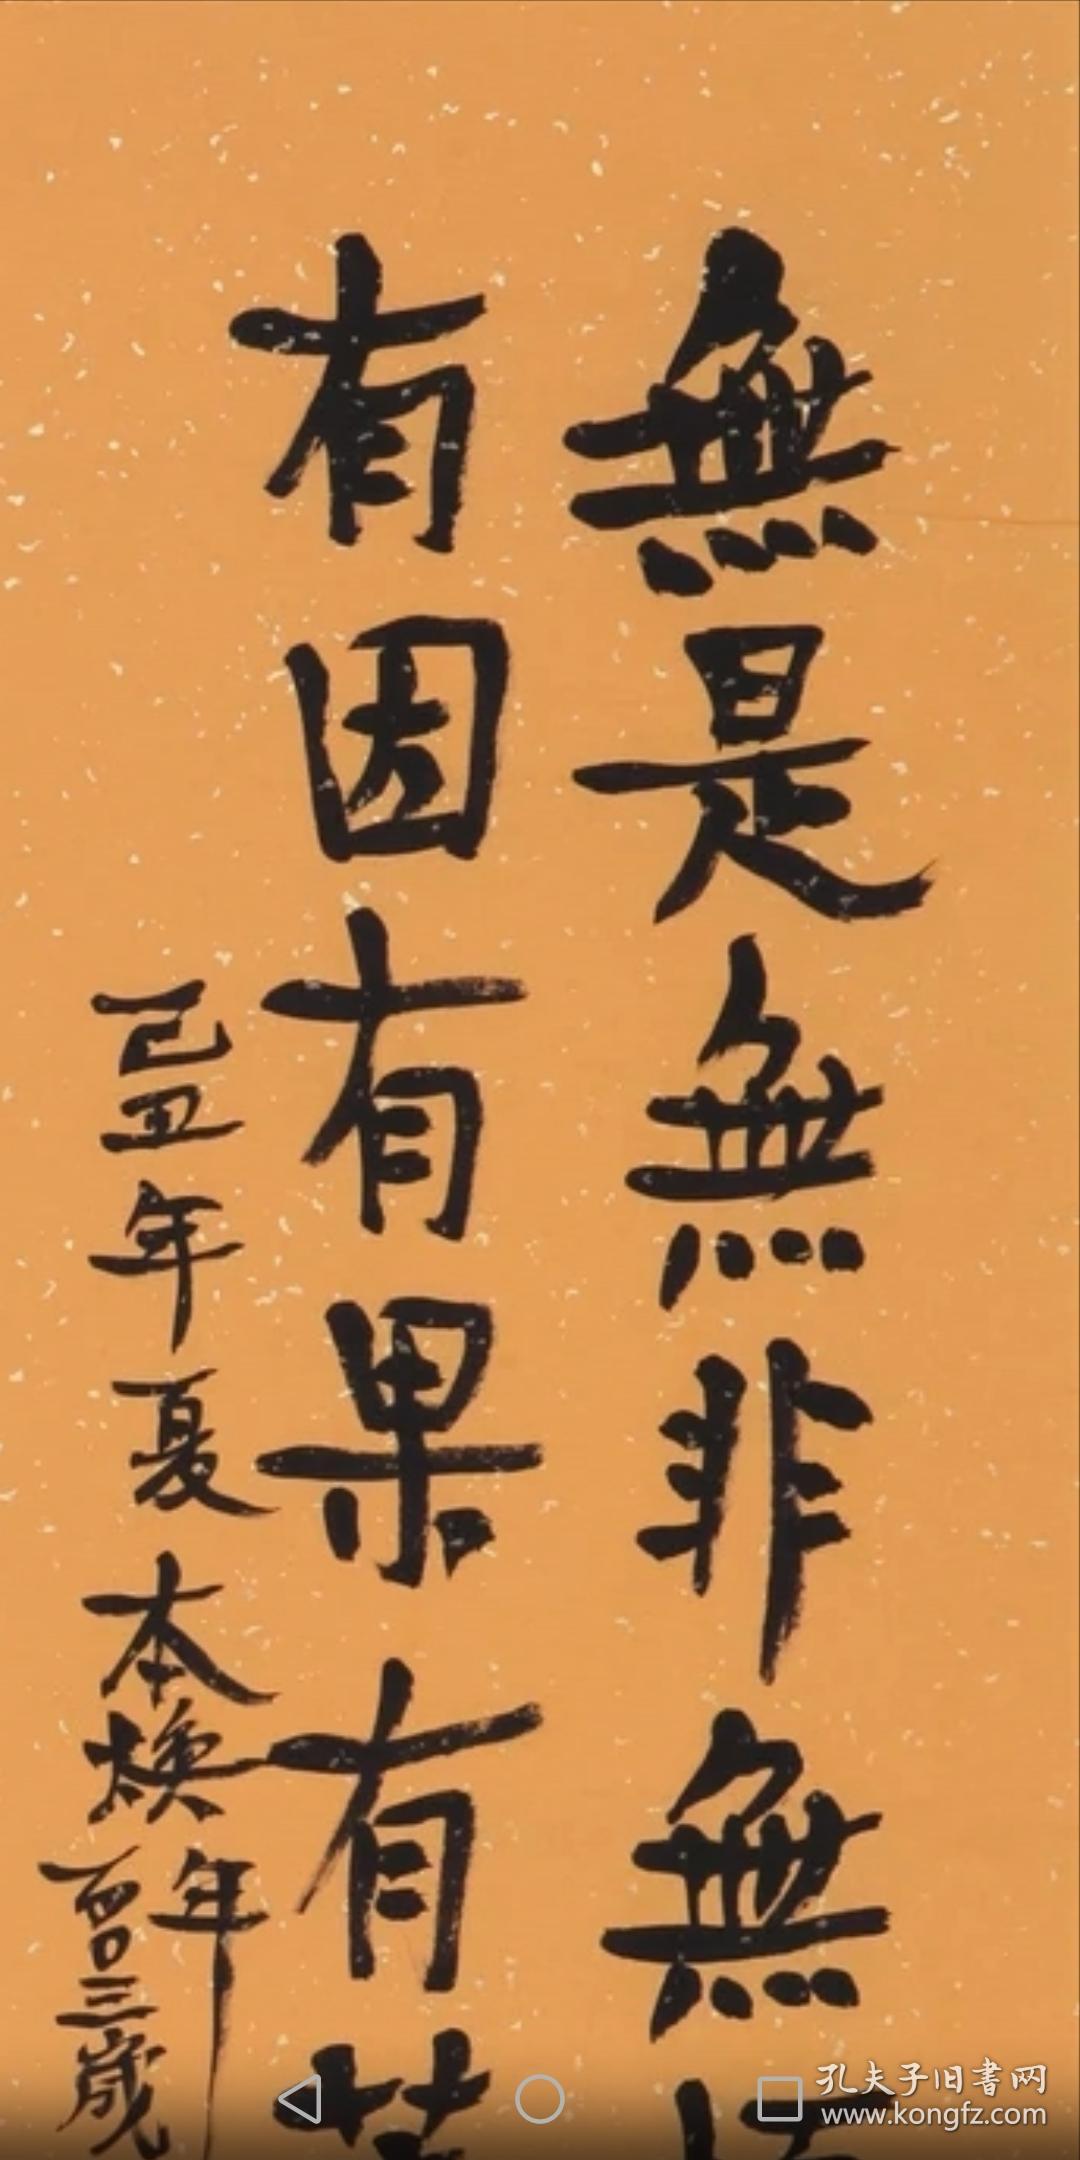 無是無非無
有因有果有
己丑年夏本煥年
百〇三歲
孔夫子旧書网
www.kongfz.com